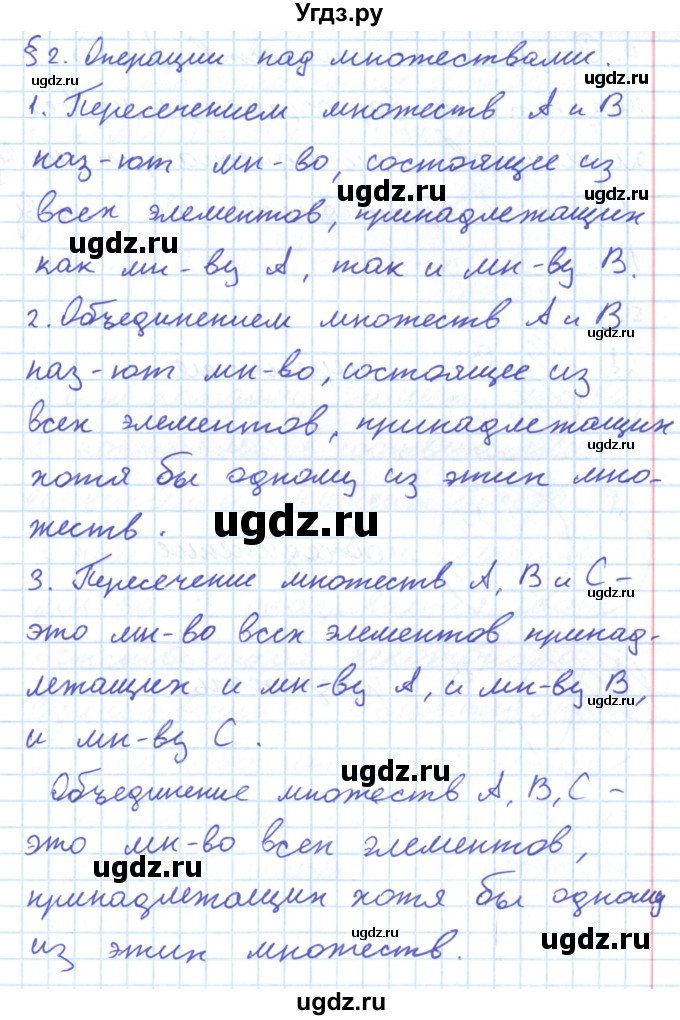 Угдз.ру
§ 2. Операции над множествами.
ugdz.ru ugdz.ru
1. Пересечением множеств A и B
наз-ют мн-во, состоящее из
ugdz.ru
всех элементов, принадлежащих
ugdz.ru
как мн-ву A, так и мн-ву B.
2. Объединением множеств A и B
ugdz.ru
наз-ют мн-во, состоящее из
всех элементов, принадлежащих
ugdz.ru
хотя бы одному из этих мно-
жеств.
ugdz.ru
3. Пересечение множеств A, B и C -
ugdz.ru
это мн-во всех элементов принад-
лежащих и мн-ву A, и мн-ву B,
ugdz.ru
и мн-ву C.
ugdz.ru
Объединение множеств A, B, C -
это мн-во всех элементов,
ugdz.ru
принадлежащих хотя бы одному
из этих множеств.
ugdz.ru ugdz.ru
ugdz.ru